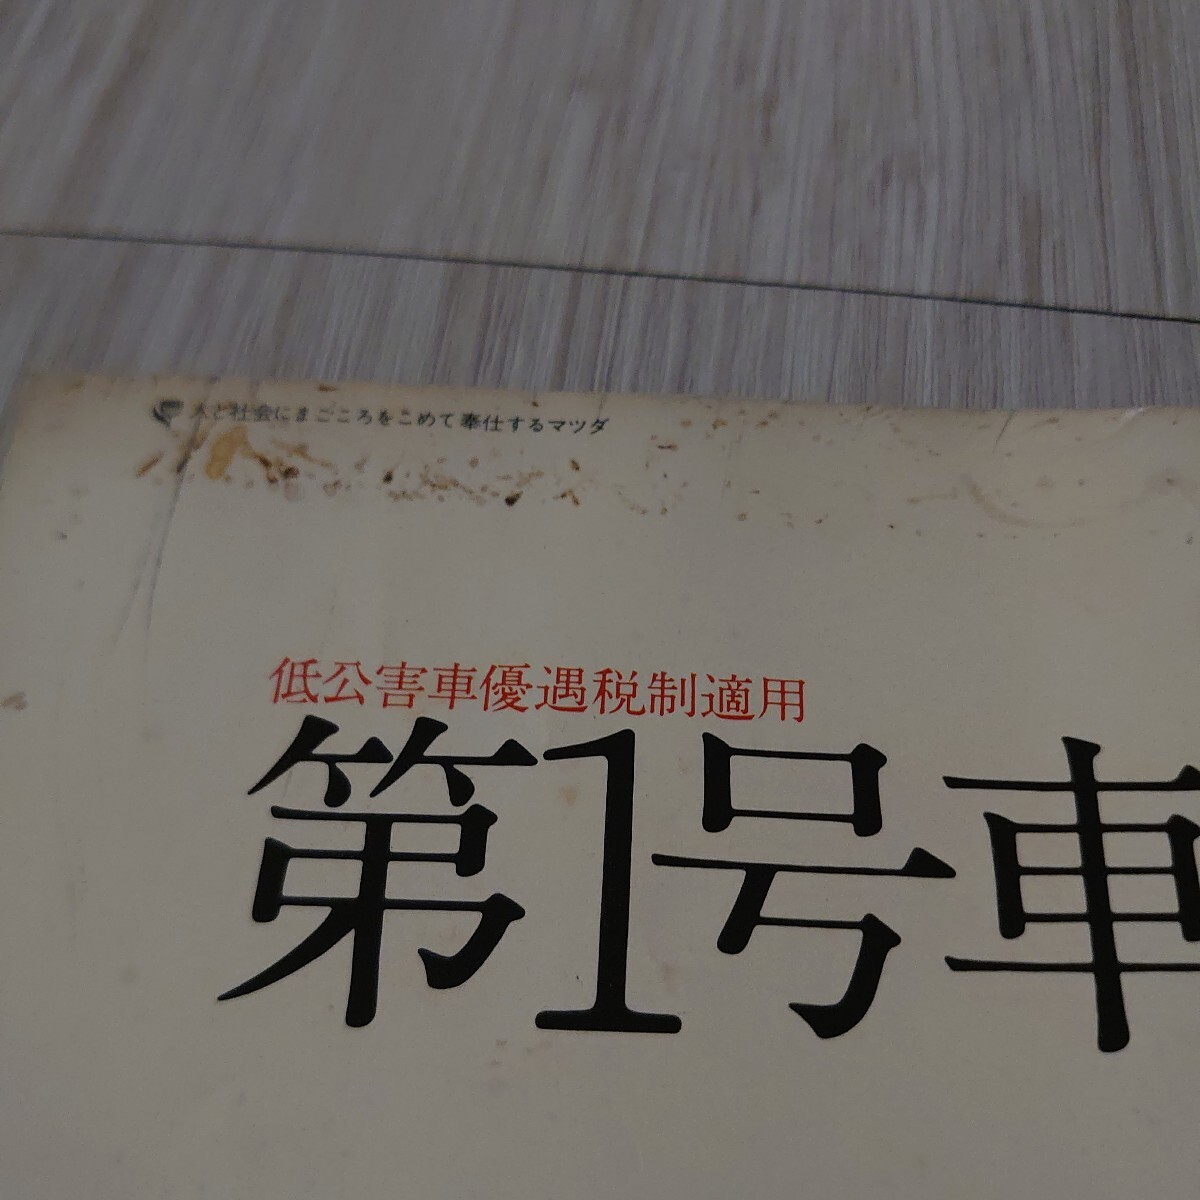 人と社会にまごころをこめて奉仕するマツダ
低公害車優遇税制適用
第1号車